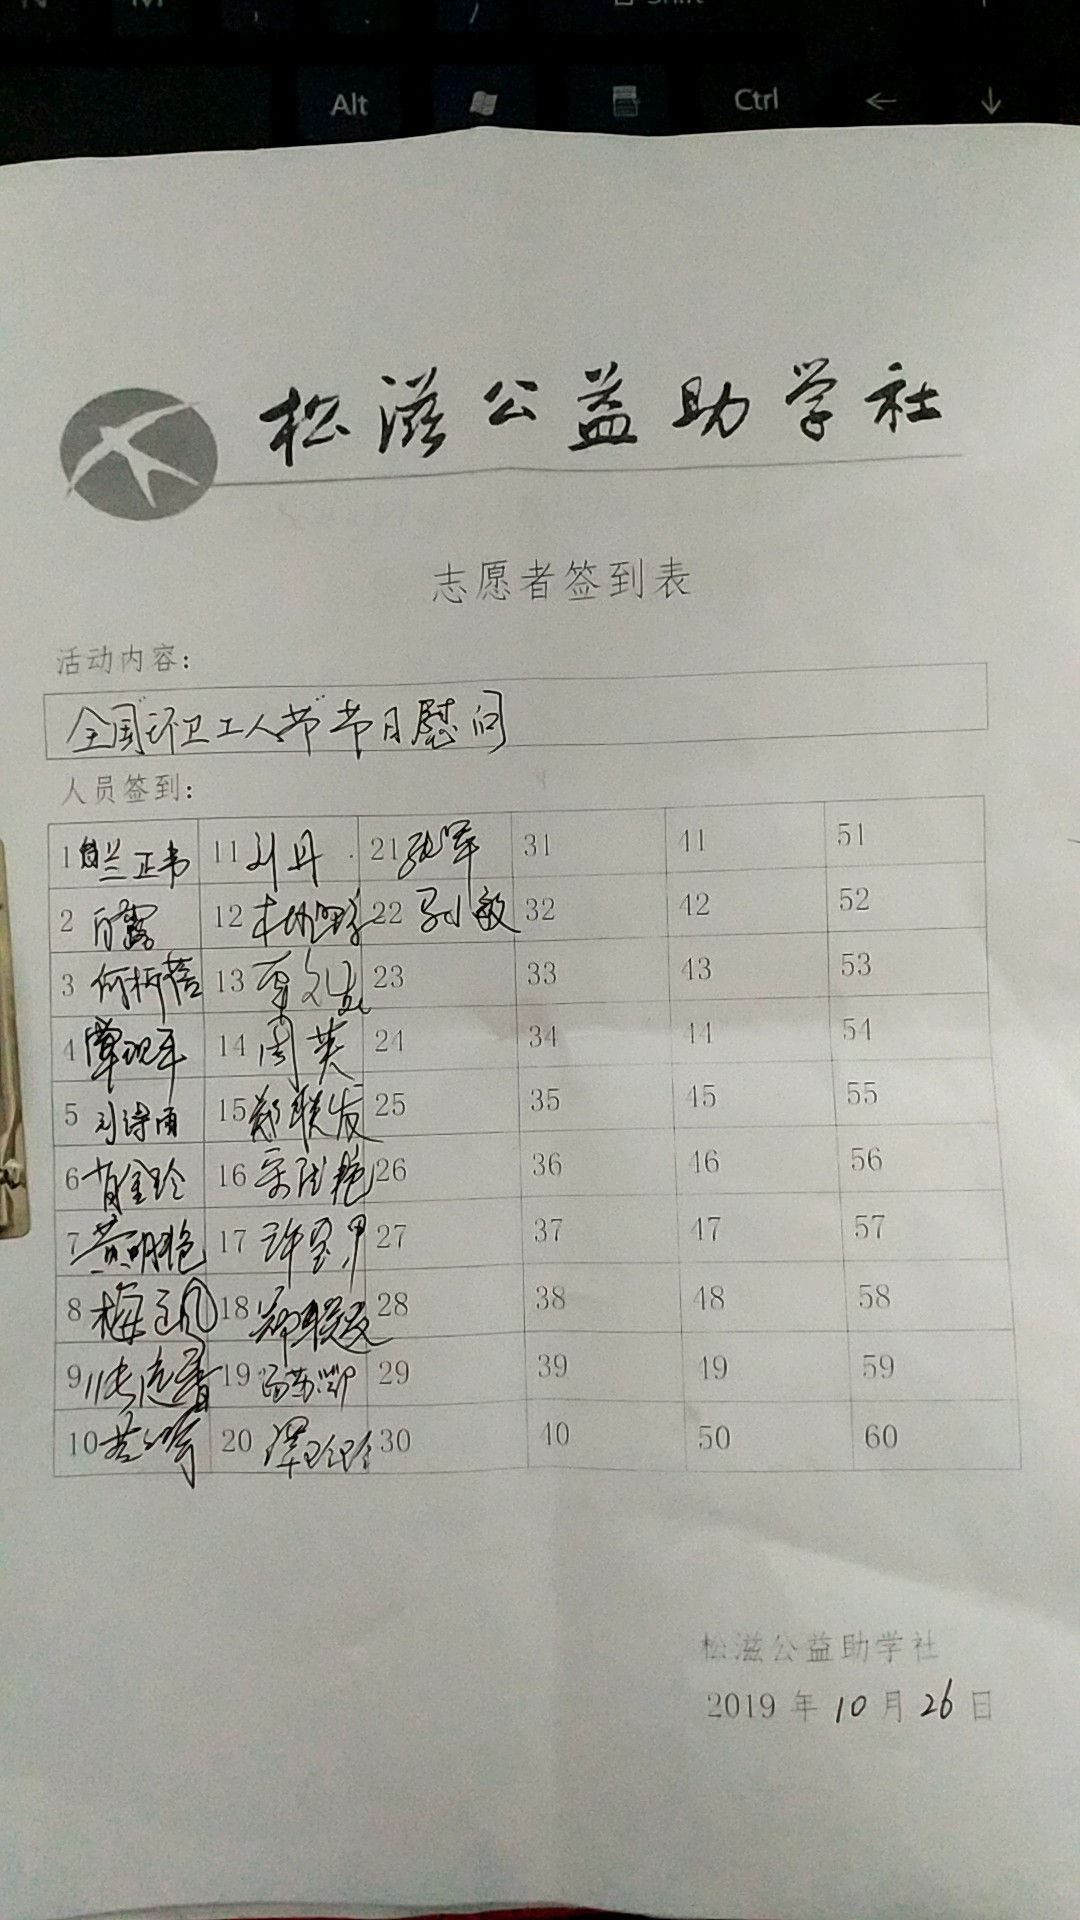 Alt
Ctrl
松滋公益助学社
志愿者签到表
活动内容:
全国"环卫工人节"节日慰问
人员签到:
1 兰正书 11 刘丹 21 张军 31 41 51
2 白露 12 22 孙敏 32 42 52
3 何柳蓓 13 23 33 43 53
4 覃现军 14 周英 24 34 44 54
5 刘诗雨 15 郑联发 25 35 45 55
6 肖金玲 16 26 36 46 56
7 黄明艳 17 27 37 47 57
8 梅 18 28 38 48 58
9 19 29 39 49 59
10 20 谭 30 40 50 60
松滋公益助学社
2019 年 10 月 26 日